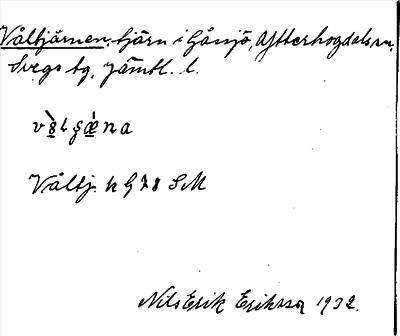 Våltjärnen, tjärn i Gåssjö, Ytterhogdals sn,
Svegs tg, Jämtl. l.
Våltj. k G 78 SM
Nils Erik Eriksson 1932.